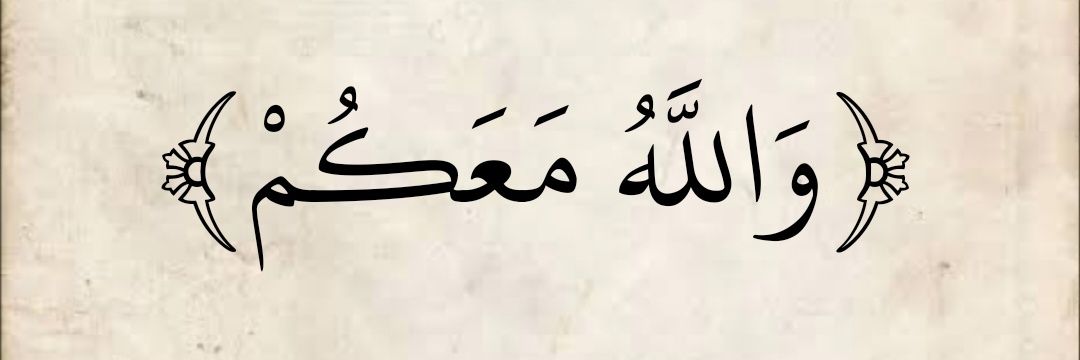 ﴿ وَاللَّهُ مَعَكُمْ ﴾